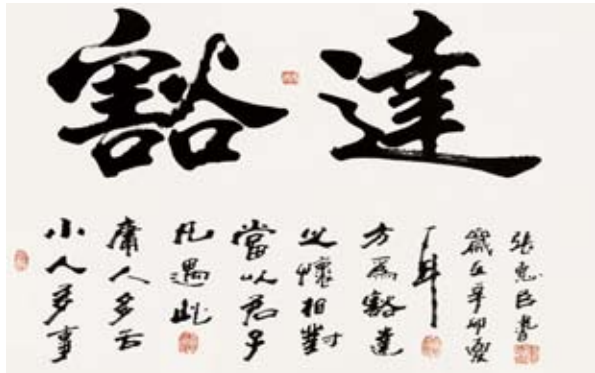 豁達
小人多事
庸人多言
凡遇此
當以君子
之懷相對
方爲豁達
歲在辛卯夏
張惠臣書